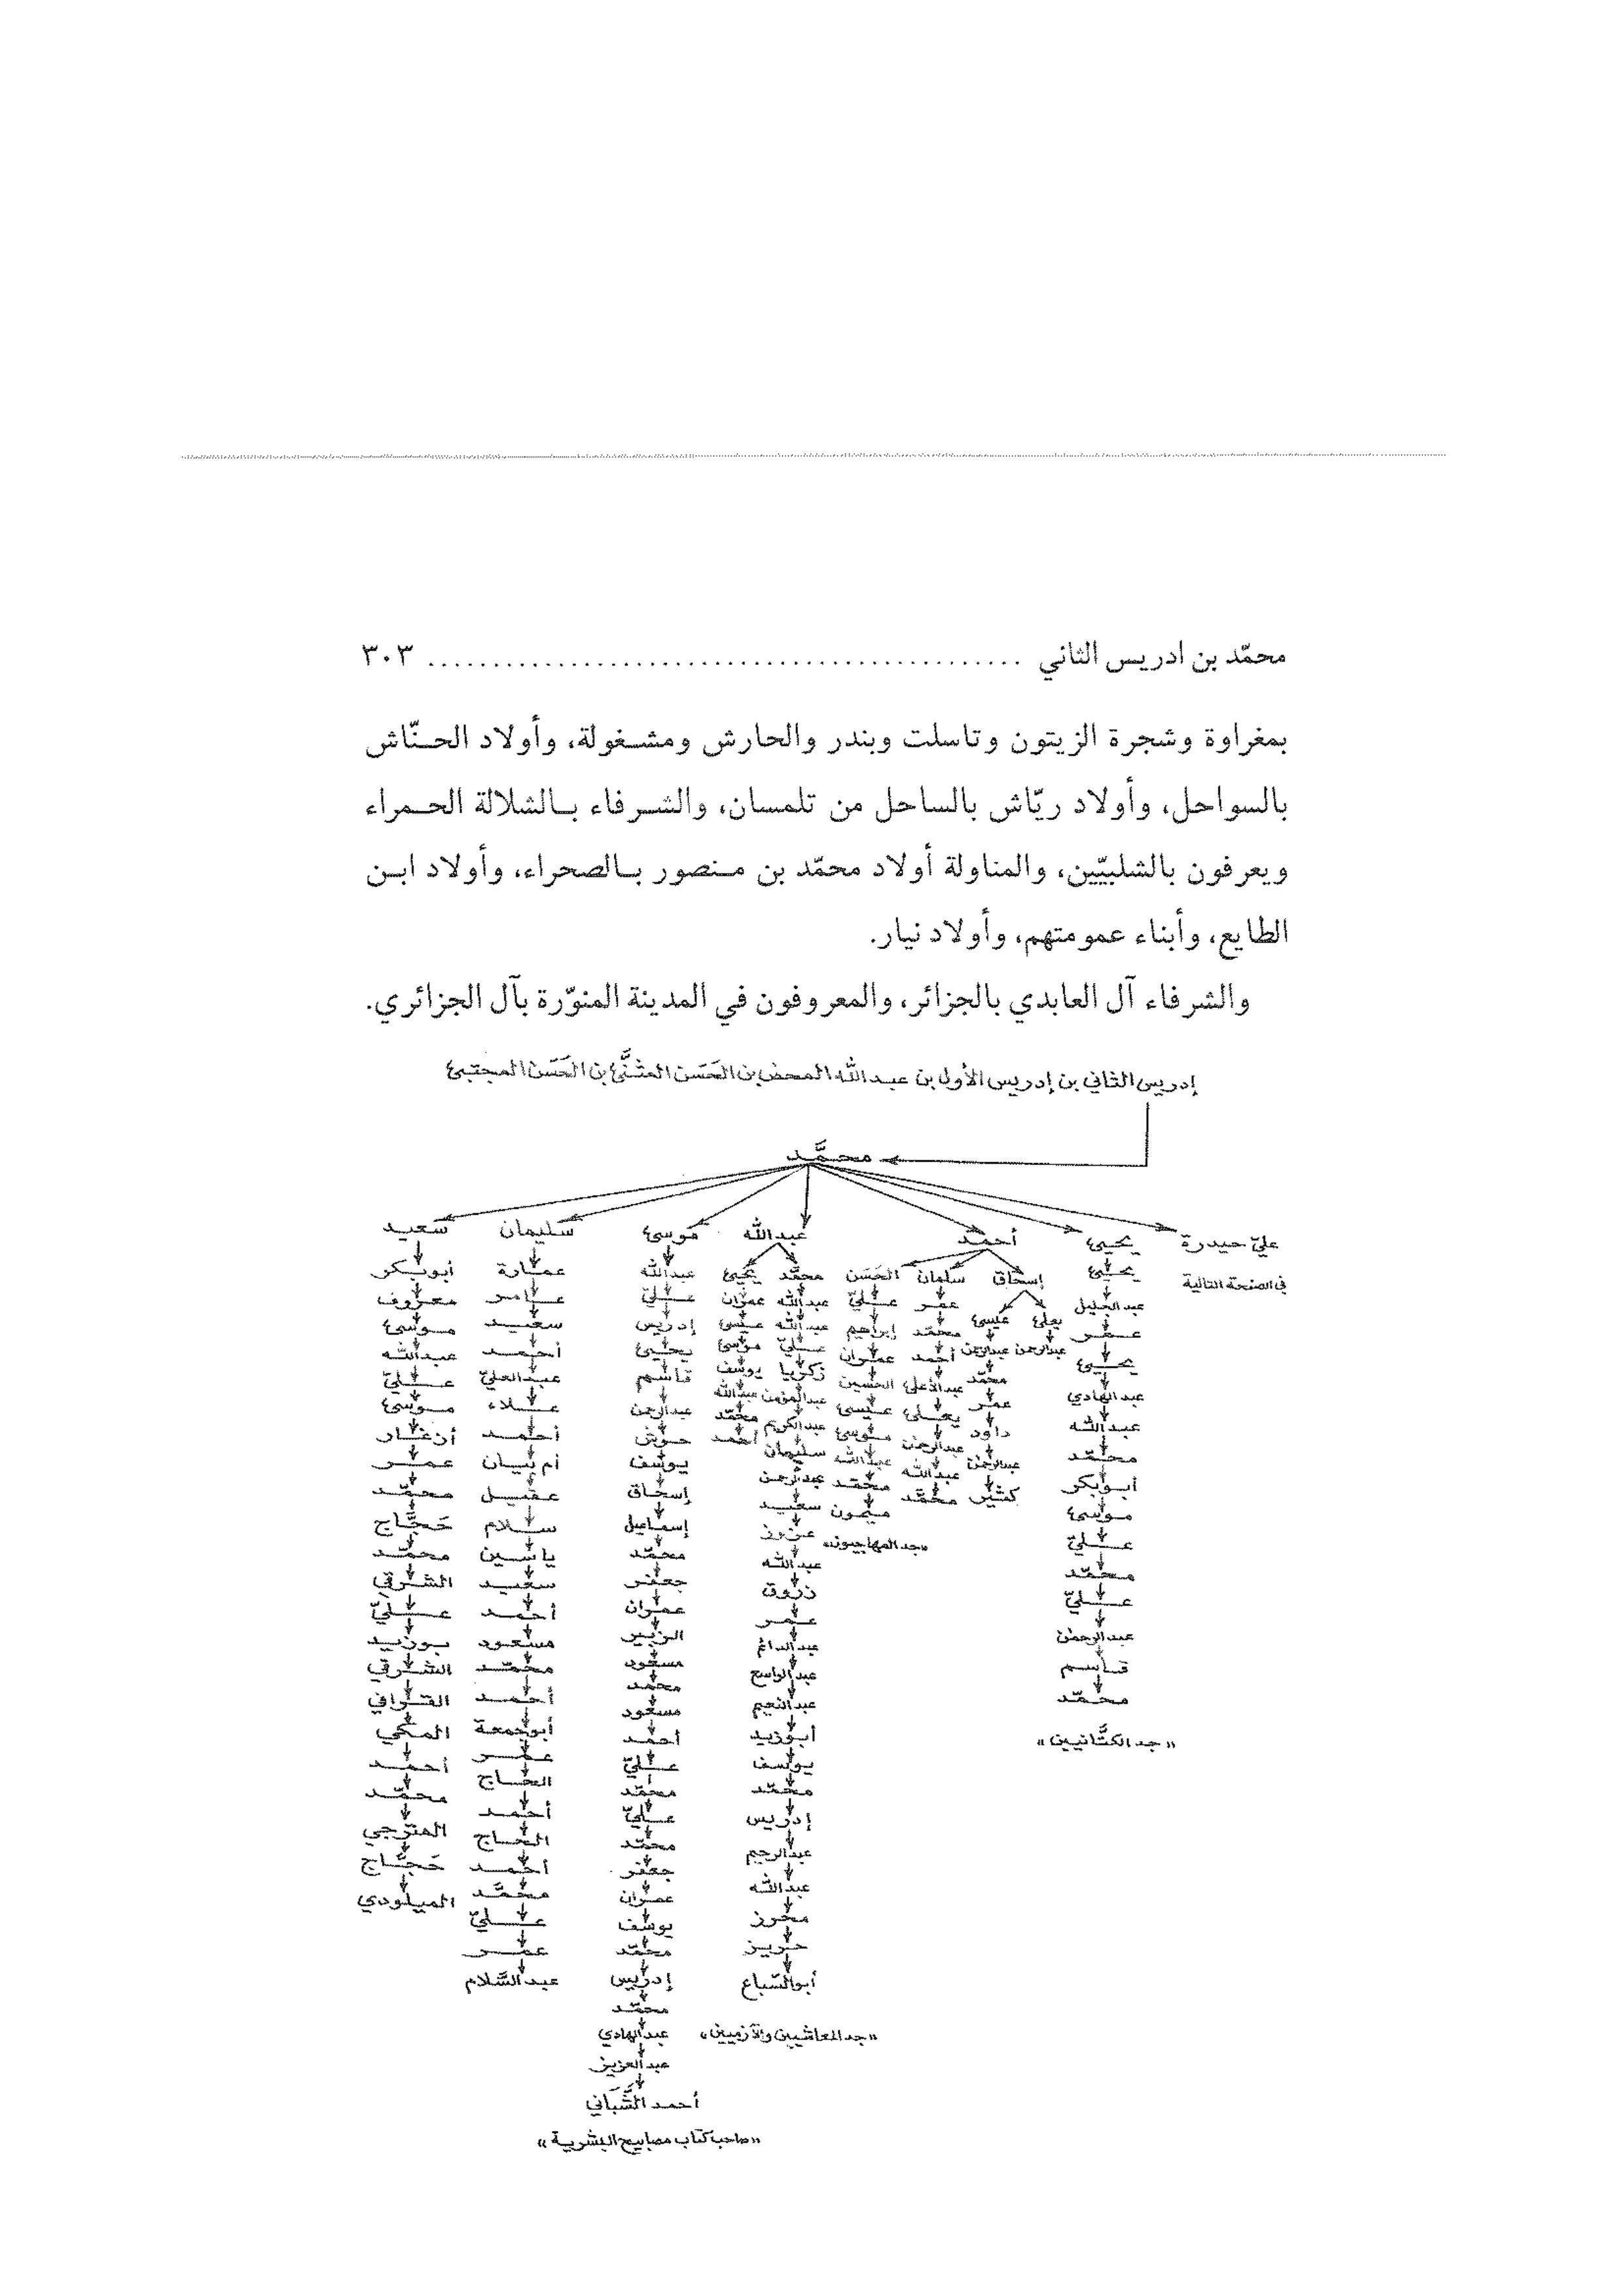 محمّد بن ادريس الثاني ........................................... ٣٠٣
بمغراوة وشجرة الزيتون وتاسلت وبندر والحارش ومشغولة، وأولاد الحنّاش
بالسواحل، وأولاد ريّاش بالساحل من تلمسان، والشرفاء بالشلالة الحمراء
ويعرفون بالشلبيّين، والمناولة أولاد محمّد بن منصور بالصحراء، وأولاد ابن
الطايع، وأبناء عمومتهم، وأولاد نيار.
والشرفاء آل العابدي بالجزائر، والمعروفون في المدينة المنوّرة بآل الجزائري.
إدريس الثاني بن إدريس الأول بن عبدالله المحض بن الحَسَن المثنَّىٰ بن الحَسَن المجتبىٰ
محمَّد
عليّ حيدرة
في الصفحة التالية
يحيىٰ
يحيىٰ
عبدالجليل
عمر
يحيىٰ
عبدالهادي
عبدالله
محمّد
أبوبكر
موسىٰ
عليّ
محمّد
عليّ
عبدالرحمٰن
قاسم
محمّد
«جد الكتَّانيين»
أحمد
إسحاق
يعلىٰ
عبدالرحمن
عيسىٰ
عبدالرحمٰن
محمّد
عمر
داود
عبدالرحمٰن
كثيّر
سلمان
عمر
محمّد
أحمد
عبدالأعلىٰ
يعلىٰ
عبدالرحمٰن
عبدالله
محمّد
الحَسَن
عليّ
إبراهيم
عمران
الحسين
عيسىٰ
موسىٰ
عبدالله
محمّد
ميمون
«جد المهاجيون»
عبدالله
محمّد
عبدالله
عبدالله
عليّ
زكريا
عبدالمؤمن
عبدالكريم
سليمان
عبدالرحمن
سعيد
عزوز
عبدالله
زروق
عمر
عبدالدائم
عبدالواسع
عبدالنعيم
أبوزيد
يوسف
محمّد
إدريس
عبدالرحيم
عبدالله
محرز
حريز
أبوالسّباع
«جد المعاشيين والآزميين»
يحيىٰ
عمران
عيسىٰ
موسىٰ
يوسف
عبدالله
محمّد
أحمد
موسىٰ
عبدالله
عليّ
إدريس
يحيىٰ
قاسم
عبدالرحمن
حوش
يوسف
إسحاق
إسماعيل
محمّد
جعفر
عمران
الزبير
مسعود
محمد
مسعود
أحمد
عليّ
محمّد
عليّ
محمّد
جعفر
عمران
يوسف
محمّد
إدريس
محمّد
عبدالهادي
عبدالعزيز
أحمد الشَّبَاني
«صاحب كتاب مصابيح البشرية»
سليمان
عمارة
عامر
سعيد
أحمد
عبدالعليّ
علاء
أحمد
أم بيان
عقيل
سلام
ياسين
سعيد
أحمد
مسعود
محمّد
أحمد
أبوجمعة
عمر
الحاج
أحمد
الحاج
أحمد
محمَّد
عليّ
عمر
عبد السَّلام
سعيد
أبوبكر
معروف
موسىٰ
عبدالله
عليّ
موسىٰ
أزغار
عمر
محمّد
حَجَّاج
محمّد
الشرقي
عليّ
بوزيد
الشرقي
القرافي
المكي
أحمد
محمّد
حَجَّاج
الميلودي